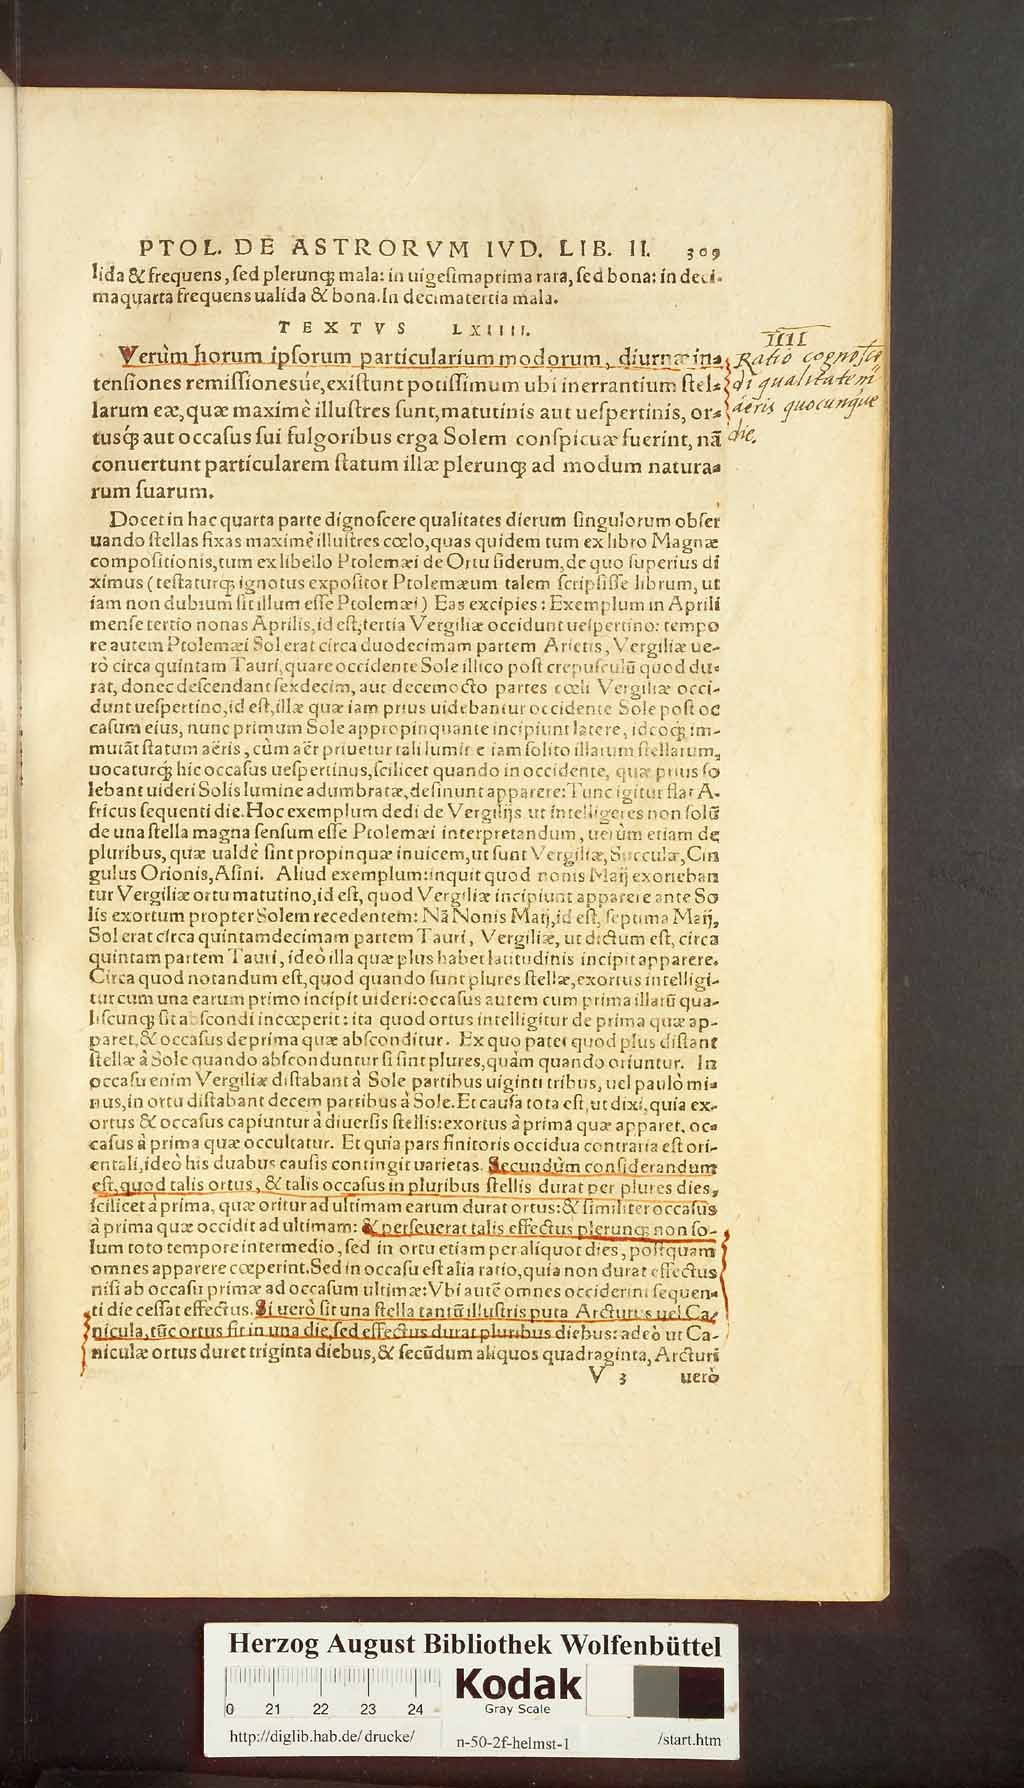 PTOL. DE ASTRORVM IVD. LIB. II. 309
lida & frequens, sed plerunq; mala: in uigesimaprima rara, sed bona: in deci-
maquarta frequens ualida & bona. In decimatertia mala.
TEXTVS LXIIII.
Verùm horum ipsorum particularium modorum, diurnæ in-
tensiones remissionesúe, existunt potissimum ubi inerrantium stel-
larum eæ, quæ maximè illustres sunt, matutinis aut uespertinis, or-
tusq́; aut occasus sui fulgoribus erga Solem conspicuæ fuerint, nã
conuertunt particularem statum illæ plerunq; ad modum natura-
rum suarum.
IIII
Ratio cognosce
di qualitatem
aëris quocunque
die.
Docet in hac quarta parte dignoscere qualitates dierum singulorum obser
uando stellas fixas maximè illustres cœlo, quas quidem tum ex libro Magnæ
compositionis, tum ex libello Ptolemæi de Ortu siderum, de quo superius di
ximus (testaturq; ignotus expositor Ptolemæum talem scripsisse librum, ut
iam non dubium sit illum esse Ptolemæi) Eas excipies: Exemplum in Aprili
mense tertio nonas Aprilis, id est, tertia Vergiliæ occidunt uespertino: tempo
re autem Ptolemæi Sol erat circa duodecimam partem Arietis, Vergiliæ ue-
rò circa quintam Tauri, quare occidente Sole illico post crepusculũ quod du-
rat, donec descendant sexdecim, aut decemocto partes cœli Vergiliæ occi-
dunt uespertino, id est, illæ quæ iam prius uidebantur occidente Sole post oc
casum eius, nunc primum Sole appropinquante incipiunt latere, ideoq; im-
mutãt statum aëris, cùm aër priuetur tali lumine iam solito illarum stellarum,
uocaturq; hic occasus uespertinus, scilicet quando in occidente, quæ prius so
lebant uideri Solis lumine adumbratæ, desinunt apparere: Tunc igitur flat A-
fricus sequenti die. Hoc exemplum dedi de Vergilijs ut intelligeres non solũ
de una stella magna sensum esse Ptolemæi interpretandum, uerùm etiam de
pluribus, quæ ualdè sint propinquæ inuicem, ut sunt Vergiliæ, Succulæ, Cin
gulus Orionis, Asini. Aliud exemplum: inquit quod nonis Maij exorieban
tur Vergiliæ ortu matutino, id est, quod Vergiliæ incipiunt apparere ante So
lis exortum propter Solem recedentem: Nã Nonis Maij, id est, septima Maij,
Sol erat circa quintamdecimam partem Tauri, Vergiliæ, ut dictum est, circa
quintam partem Tauri, ideò illa quæ plus habet latitudinis incipit apparere.
Circa quod notandum est, quod quando sunt plures stellæ, exortus intelligi-
tur cum una earum primo incipit uideri: occasus autem cum prima illarũ qua-
liscunq; sit abscondi incœperit: ita quod ortus intelligitur de prima quæ ap-
paret, & occasus de prima quæ absconditur. Ex quo patet quod plus distant
stellæ à Sole quando absconduntur si sint plures, quàm quando oriuntur. In
occasu enim Vergiliæ distabant à Sole partibus uiginti tribus, uel paulò mi-
nus, in ortu distabant decem partibus à Sole. Et causa tota est, ut dixi, quia ex-
ortus & occasus capiuntur à diuersis stellis: exortus à prima quæ apparet, oc-
casus à prima quæ occultatur. Et quia pars finitoris occidua contraria est ori-
entali, ideò his duabus causis contingit uarietas. Secundùm considerandum
est, quod talis ortus, & talis occasus in pluribus stellis durat per plures dies,
scilicet à prima, quæ oritur ad ultimam earum durat ortus: & similiter occasus
à prima quæ occidit ad ultimam: & perseuerat talis effectus plerunq; non so-
lum toto tempore intermedio, sed in ortu etiam per aliquot dies, postquam
omnes apparere cœperint. Sed in occasu est alia ratio, quia non durat effectus
nisi ab occasu primæ ad occasum ultimæ: Vbi autē omnes occiderint sequen-
ti die cessat effectus. Si uerò sit una stella tantũ illustris puta Arcturus uel Ca-
nicula, tũc ortus fit in una die, sed effectus durat pluribus diebus: adeò ut Ca-
niculæ ortus duret triginta diebus, & secũdum aliquos quadraginta, Arcturi
V 3 uerò
Herzog August Bibliothek Wolfenbüttel
0 21 22 23 24
Kodak
Gray Scale
http://diglib.hab.de/drucke/ n-50-2f-helmst-1 /start.htm